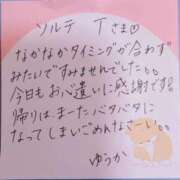 ソルテ Tさま♡
なかなかタイミングが合わず
みたいですみませんでした。。
今日もお心遣いに感謝です!!
帰りは、またバタバタに
なってしまいごめんなさーい。。
ゆうか